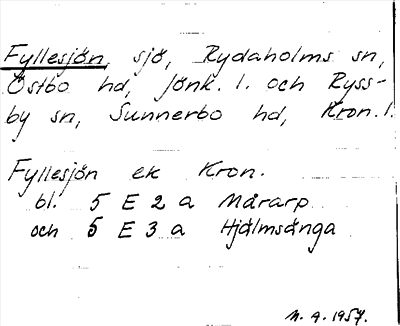 Fyllesjön, sjö, Rydaholms sn,
Östbo hd, Jönk. l. och Ryss-
by sn, Sunnerbo hd, Kron. l.
Fyllesjön ek Kron.
bl. 5 E 2 a Mårarp
och 5 E 3 a Hjälmsänga
M. A. 1957.